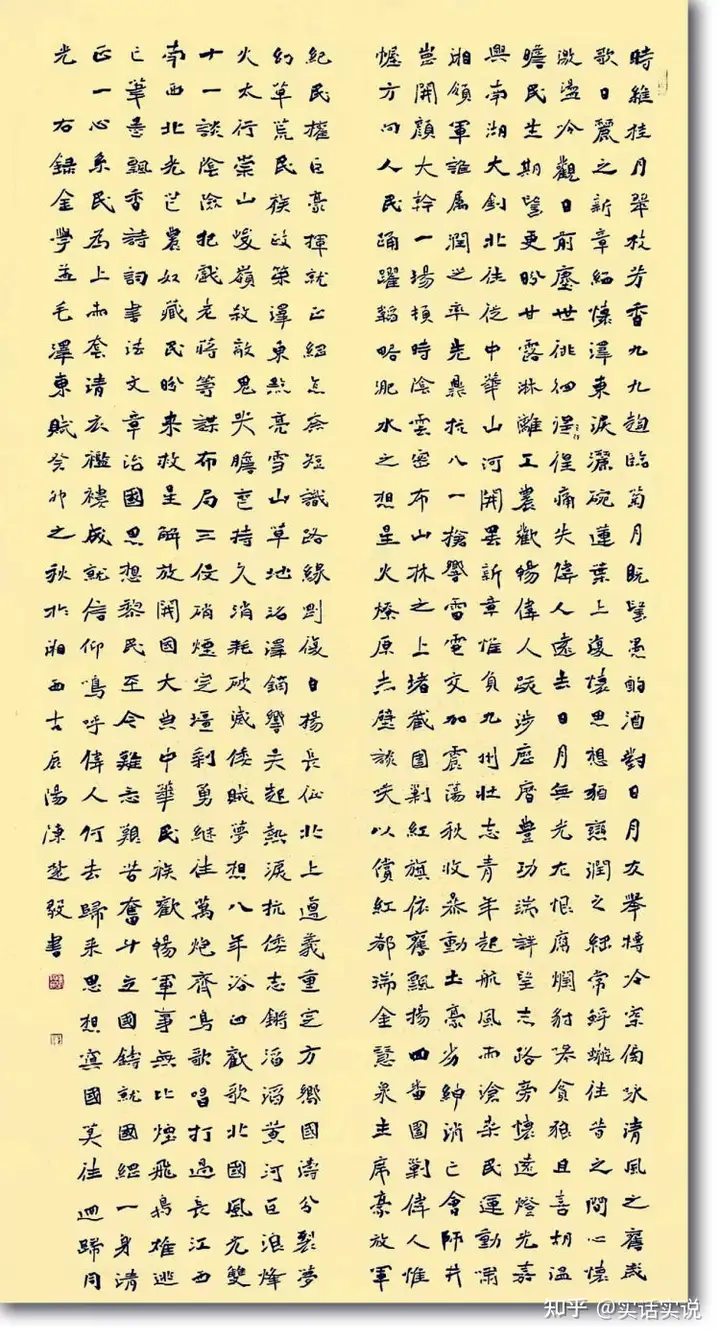 時維桂月翠枚芳香九九趨臨菊月既望愚酌酒對日月友舉搏冷案咏清風之舊感
歌日麗之新章緬懷澤東淚灑碗蓮葉上復懷思想戀潤之經常蜉蝣往昔之間心懷
激盪冷觀日前塵世徘徊痛失偉人遠去日月無光尤恨腐爛豺貪狼且喜胡温
瞻民生期望更盼甘露淋離工農歡暢偉人跋涉歷磨豐功端詳望志路旁懷遠燈光嘉
興南湖大釗北往從中華山河開罢新章惟負九州壯志青年起航風雨滄桑民運動潮
湘領軍誰属潤之率先鼎抗八一搶響雷電交加震蕩秋收暴動土豪劣紳消亡會師井
岗開顏大幹一場頓時陰雲密布山林之上堵截圍剿紅旗依舊飄揚四番圍剿偉人惟
幄方向人民踊躍韜略淝水之想星火燎原赤壁談笑以償紅都瑞金慧泉主席豪放軍
紀民權巨豪揮就正紹奈短識路緣劉復日揚長征北上遵義重定方嚮國濤分裂夢
幻草荒民族政策澤東點亮雪山草地沼澤鏑響夫起熱淚抗倭志鏘滔滔黄河巨浪烽
火太行崇山峻嶺殺敵鬼哭膽喪持久消耗破滅倭賊夢想八年浴血歡歌北國風光雙
十一談陰險把戲老將等謀布局三役硝煙定壇剩勇繼往萬炮齊鳴歌唱打過長江西
南西北光芒農奴藏民盼来救星解放開國大典中華民族歡暢軍事無比煙飛搗雄逃
亡筆墨飄香詩詞書法文章治國思想黎民至今難忘艱苦奮斗立國鑄就國紹一身清
正一心系民為上雨奈清衣襤褸成就信仰嗚呼偉人何去歸来思想寞國莫往迴歸同
光 右録金學孟毛澤東賦癸卯之秋於湘西古辰陽陳楚發書
知乎 @实话实说